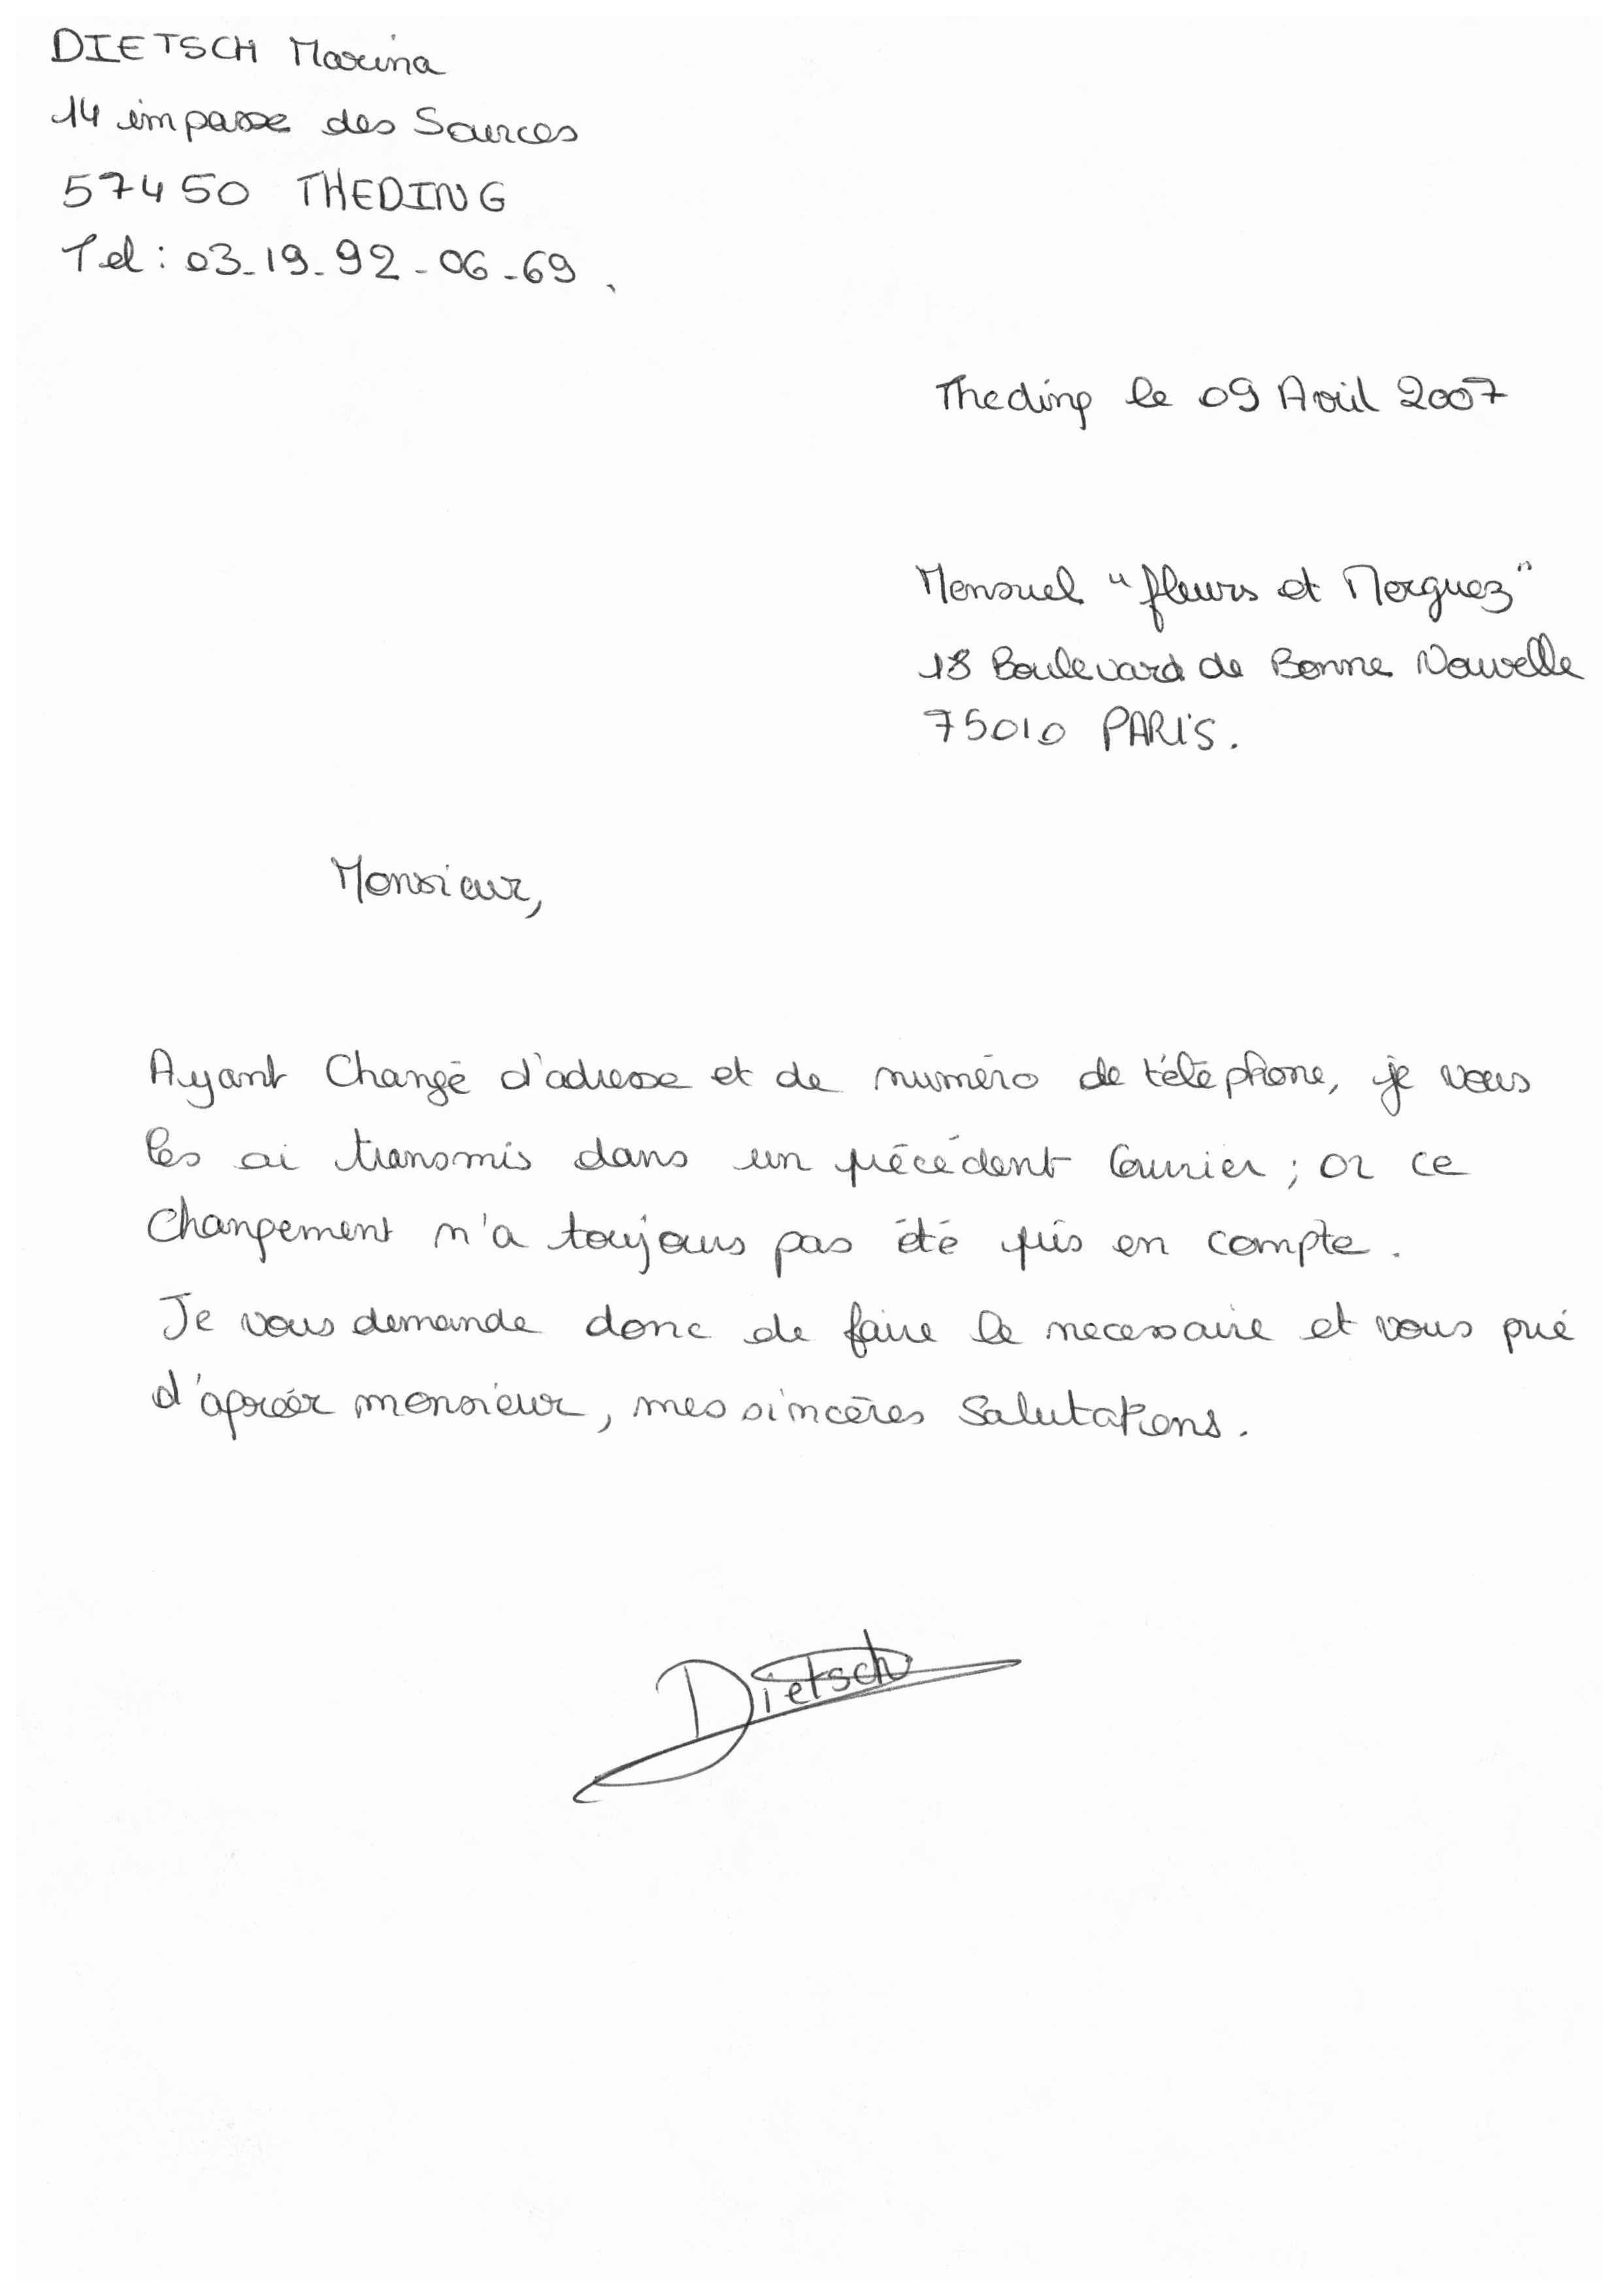 DIETSCH Marina
14 impasse des Sources
57450 THEDING
Tel : 03-19-92-06-69
Theding le 09 Avril 2007
Mensuel "fleurs et Merguez"
18 Boulevard de Bonne Nouvelle
75010 PARIS.
Monsieur,
Ayant Changé d'adresse et de numéro de téléphone, je vous
les ai transmis dans un précédent Courrier ; or ce
Changement n'a toujours pas été pris en compte.
Je vous demande donc de faire le necessaire et vous prié
d'agréér monsieur, mes sincères Salutations.
Dietsch